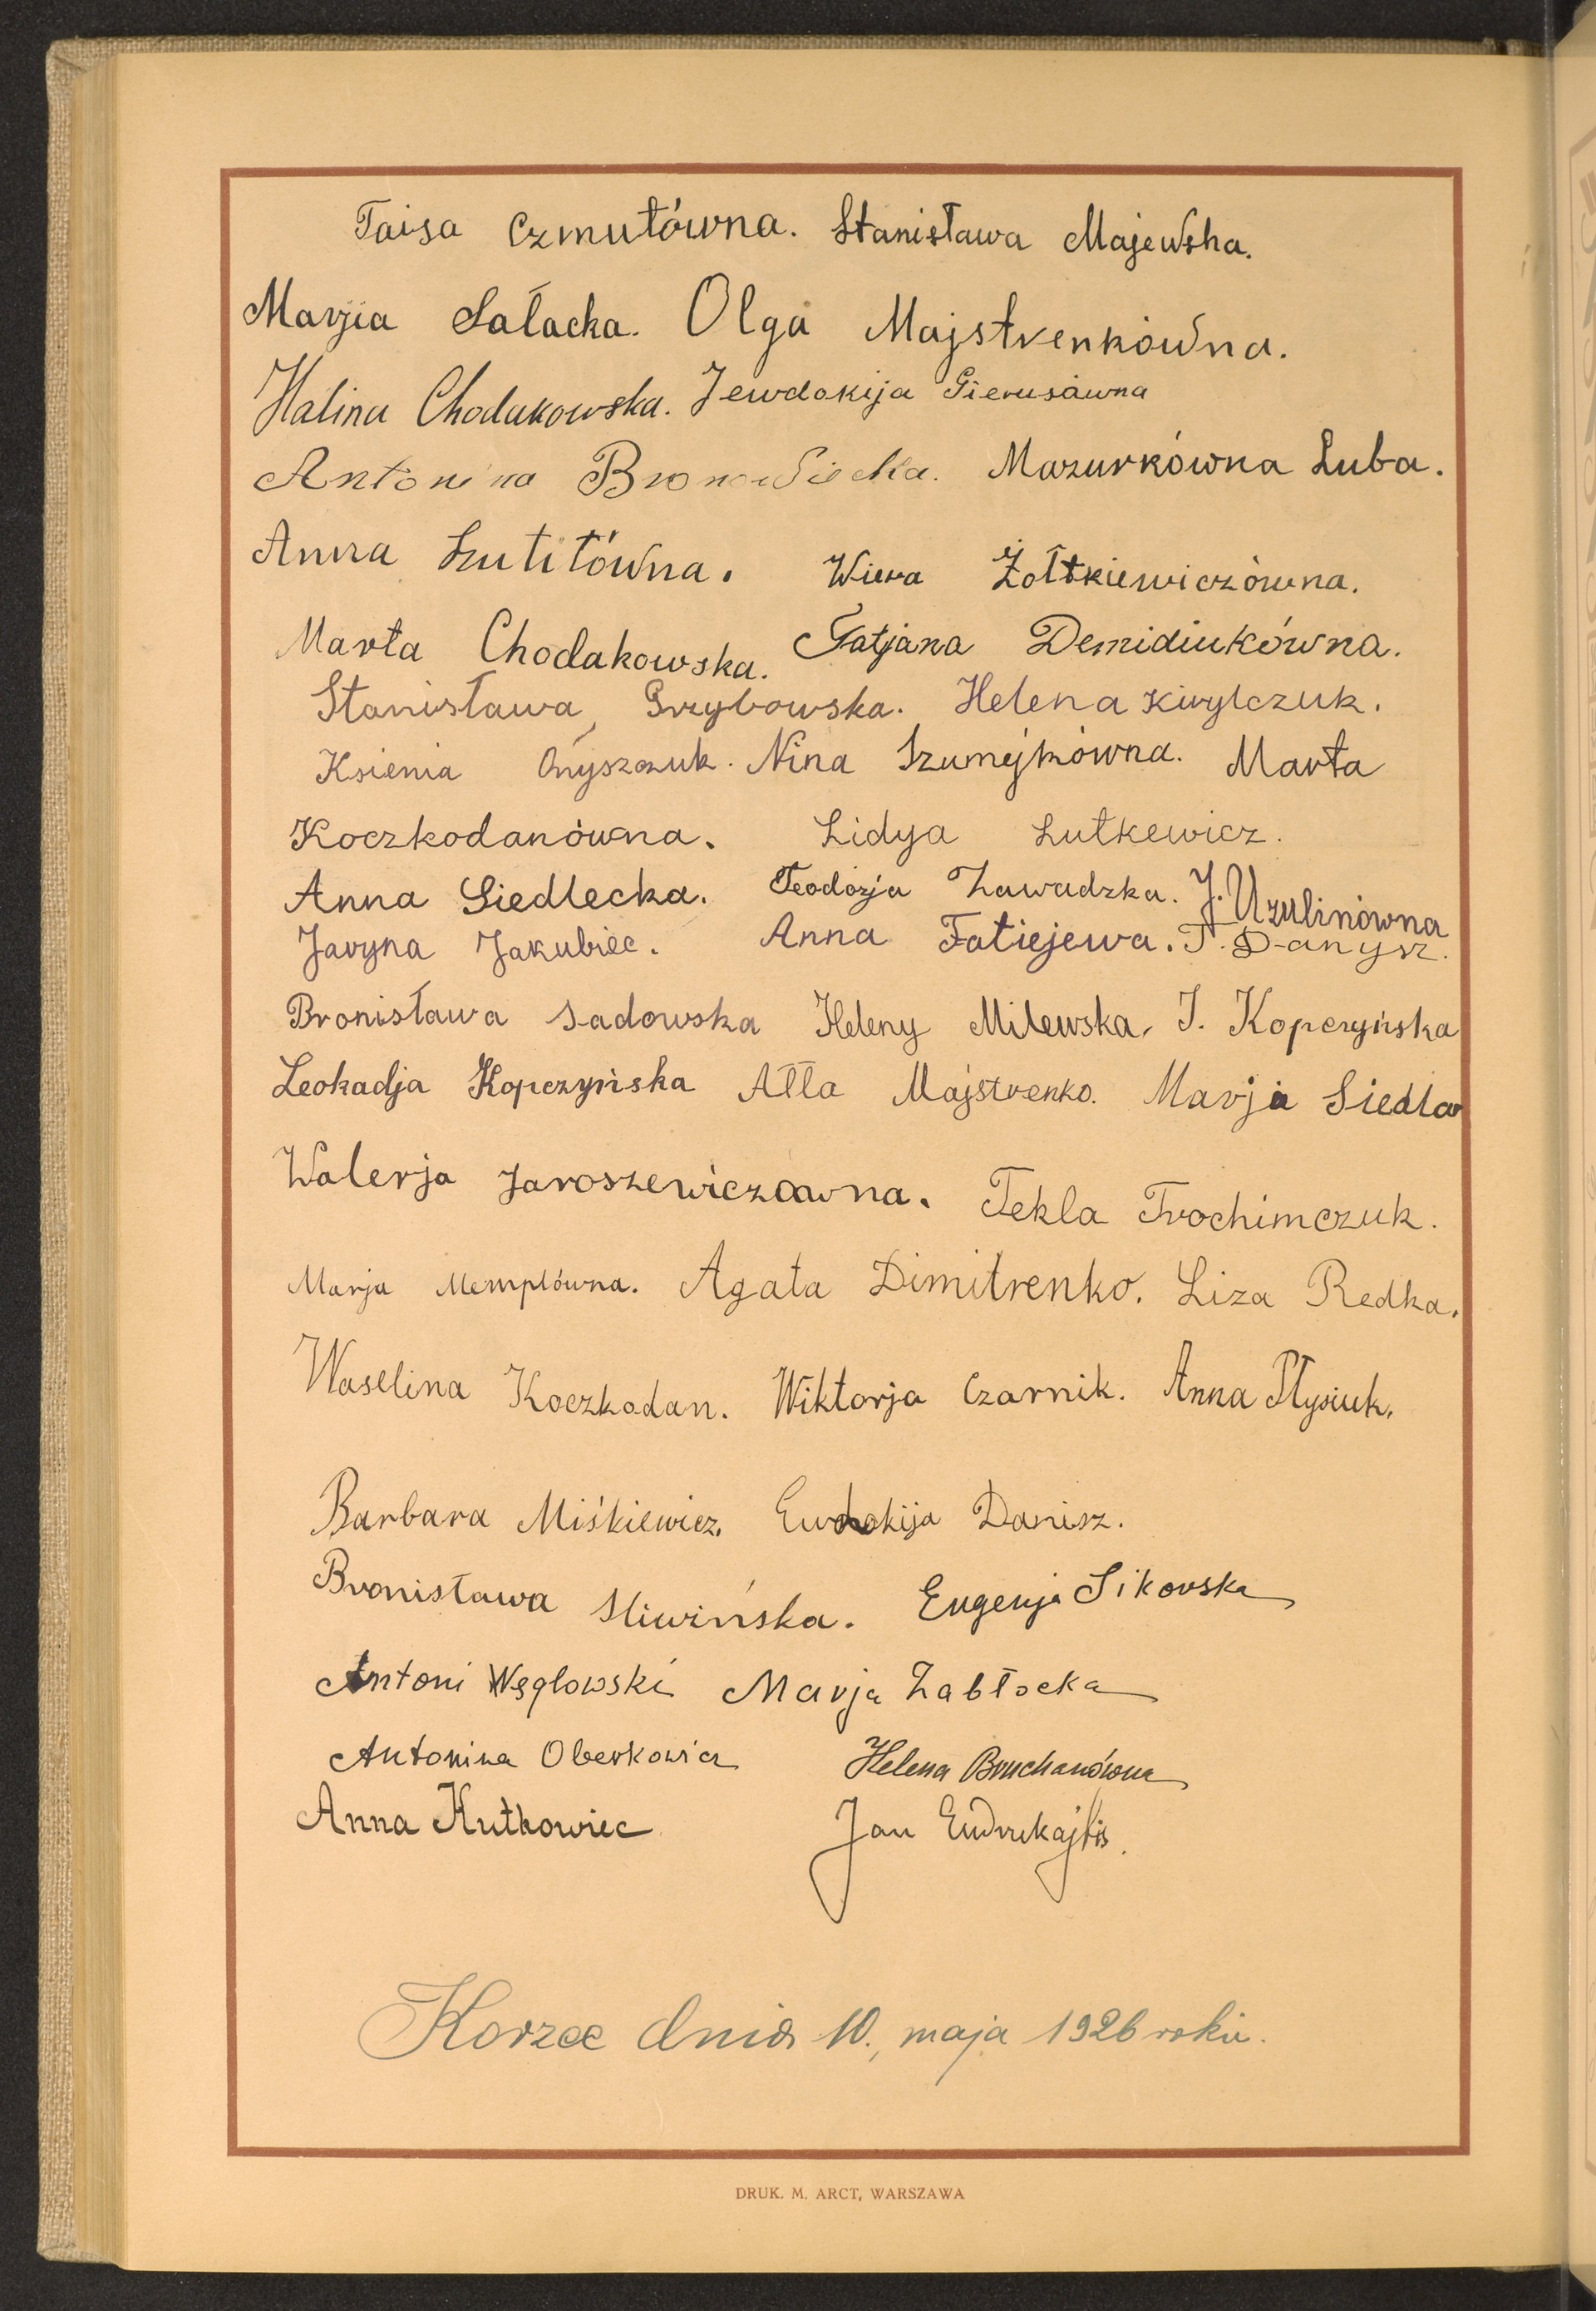 Taisa Czmutówna. Stanisława Majewska.
Marjia Sałacka. Olga Majstrenkówna.
Halina Chodakowska. Jewdokija Gierusówna
Antonina Bronowicka. Mazurkówna Luba.
Anna Łutitówna. Wiera Żołtkiewiczówna.
Marta Chodakowska. Tatjana Demidiukówna.
Stanisława Grzybowska. Helena Kirylczuk.
Ksienia Onyszczuk. Nina Szumejkówna. Marta
Koczkodanówna. Lidya Lutkewicz.
Anna Siedlecka. Teodozja Zawadzka. J. Uzulinówna
Jaryna Jakubiec. Anna Fatiejewa. T. Danysz.
Bronisława Sadowska Heleny Milewska, J. Kopczyńska
Leokadja Kopczyńska Ałła Majstrenko. Marja Siedlar
Walerja Jaroszewiczowna. Tekla Trochimczuk.
Marja Memplówna. Agata Dimitrenko. Liza Redka.
Waselina Koczkodan. Wiktorja Czarnik. Anna Płysiuk.
Barbara Miśkiewicz. Ewdokija Danisz.
Bronisława Śliwińska. Eugenja Sikorska
Antoni Węglowski Marja Zabłocka
Antonina Oberkowicz Helena Bruchanówna
Anna Kutkowiec Jan
Korzec dnia 10., maja 1926 roku.
DRUK. M. ARCT, WARSZAWA